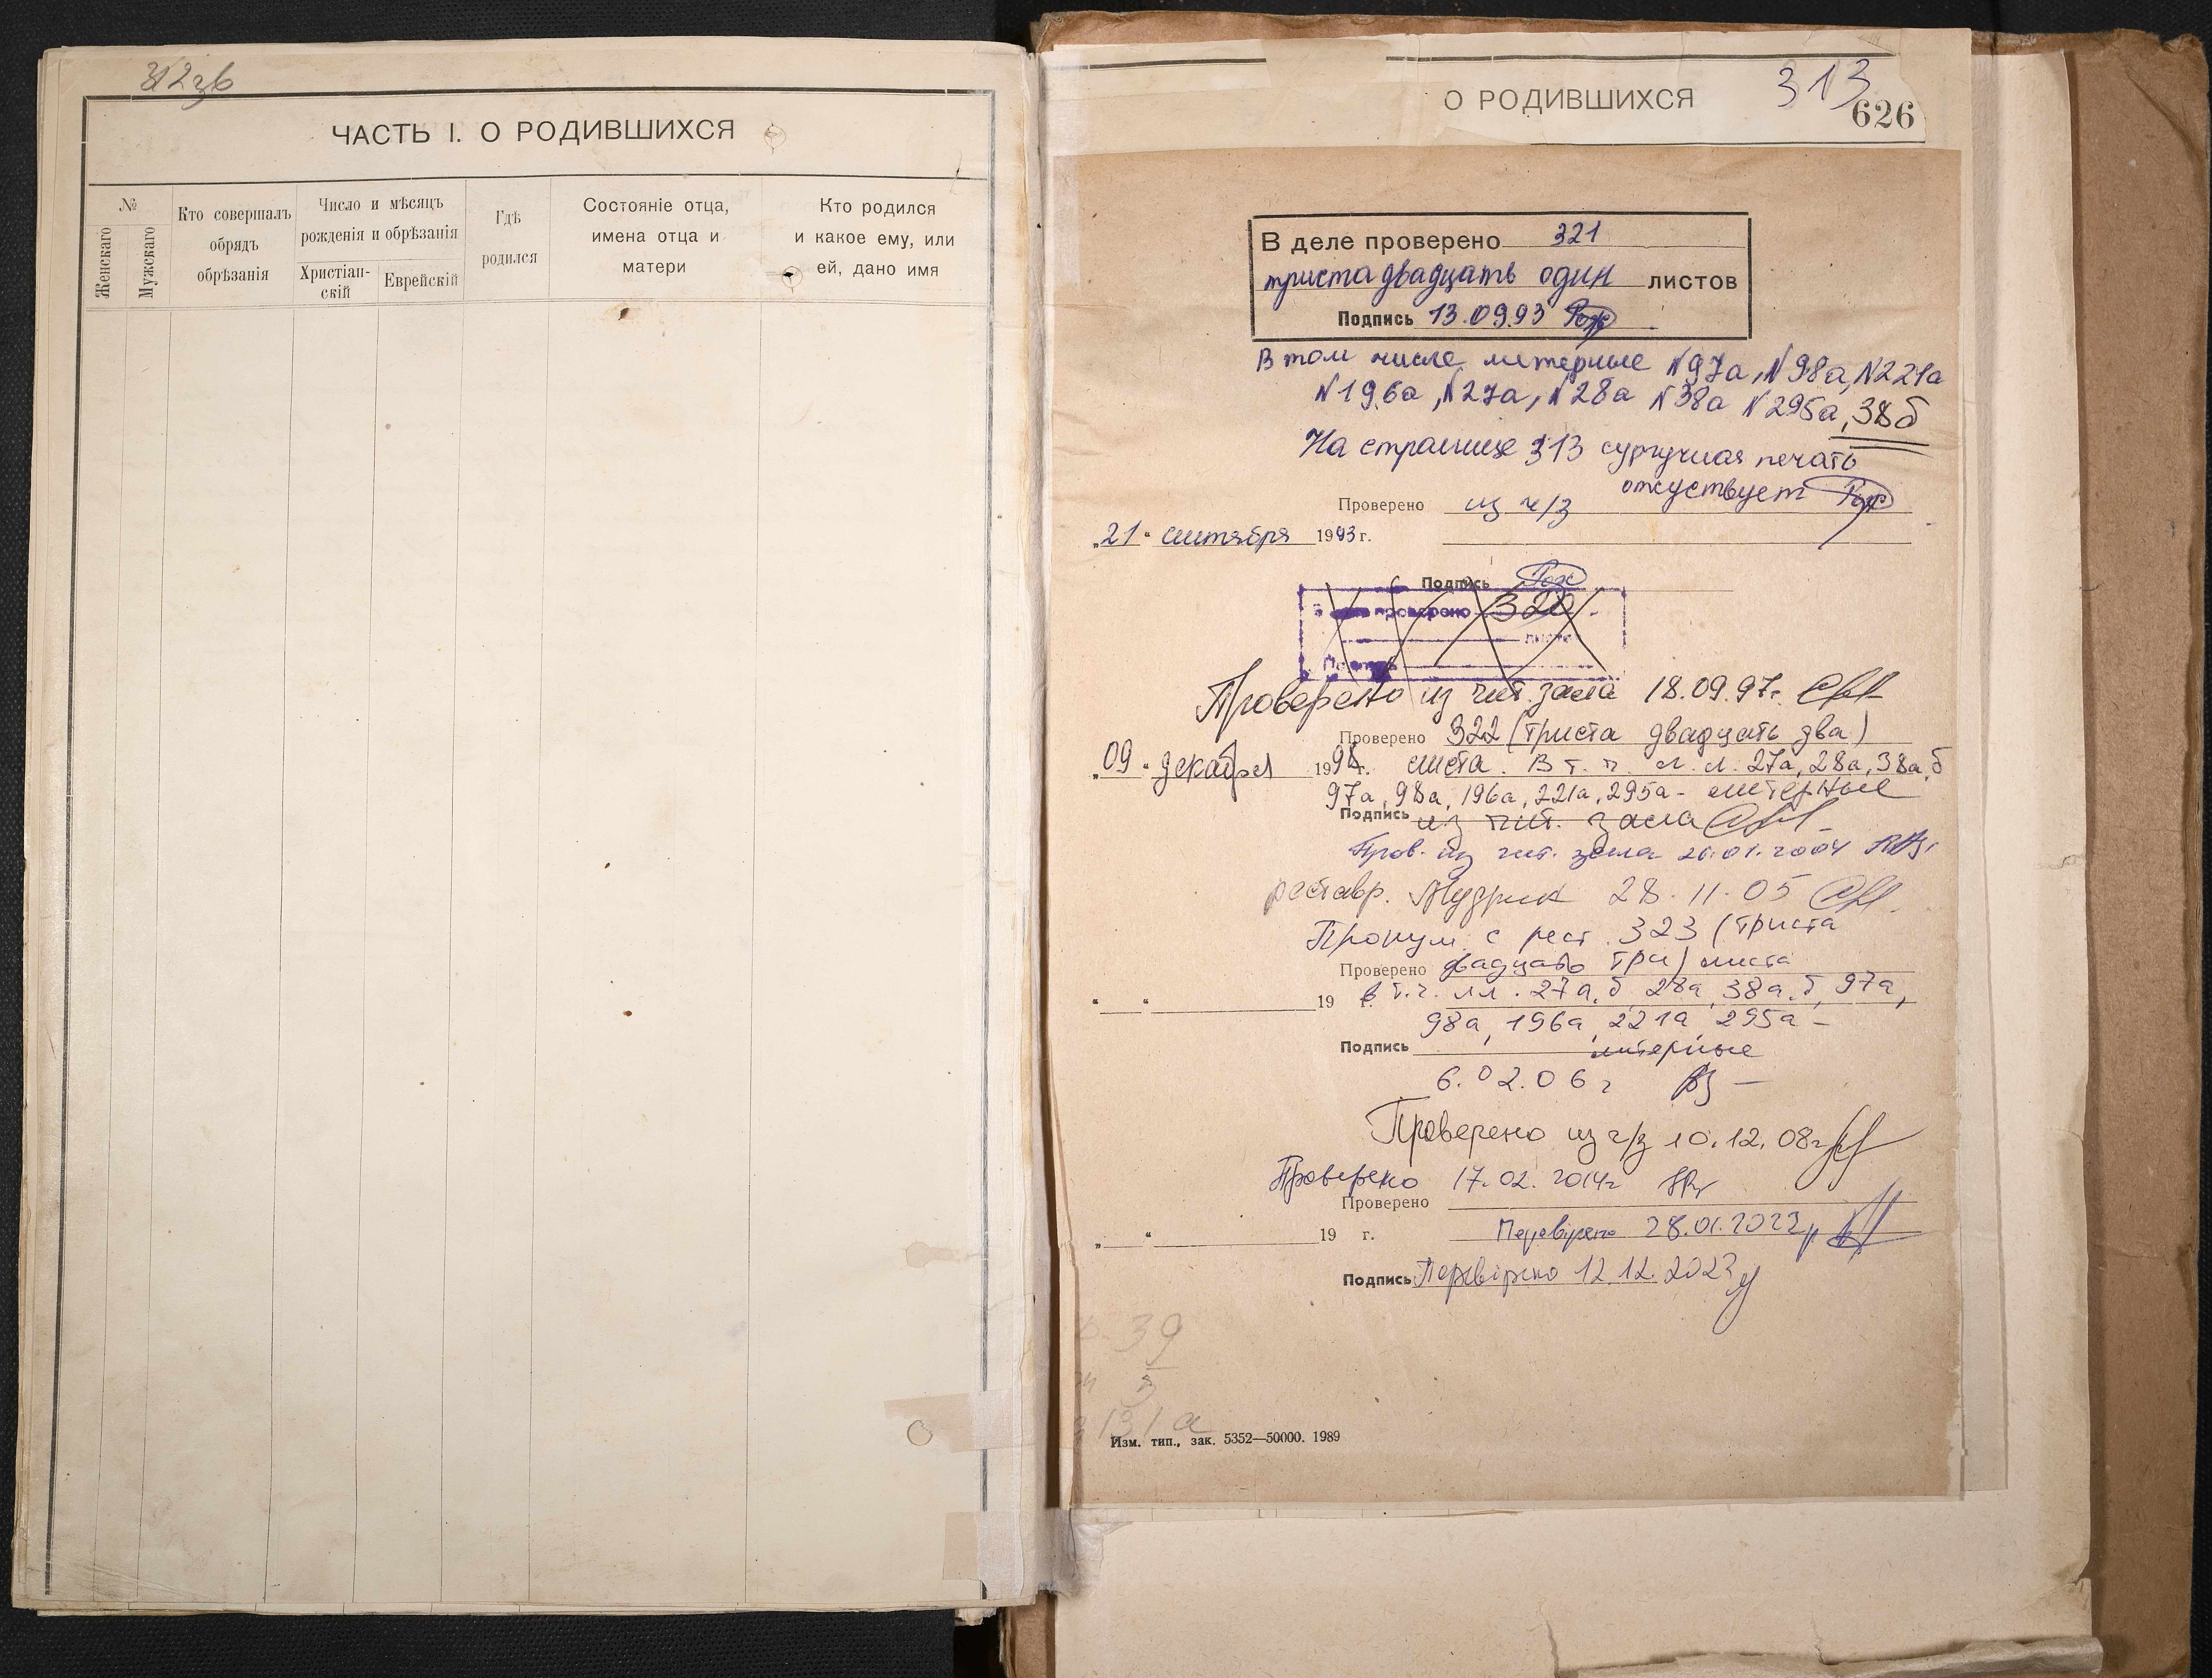 312зв
ЧАСТЬ I. О РОДИВШИХСЯ
№
Женскаго
Мужскаго
Кто совершалъ
обрядъ
обрѣзанія
Число и мѣсяцъ
рожденія и обрѣзанія
Христіан-
скій
Еврейскій
Гдѣ
родился
Состояніе отца,
имена отца и
матери
Кто родился
и какое ему, или
ей, дано имя
О РОДИВШИХСЯ
313
626
В деле проверено 321
триста двадцать один листов
Подпись 13.09.93
В том числе литерные №97а, №98а, №221а
№196а, №27а, №28а №38а №295а, 38б
На странице 313 сургучная печать
отсуствует
Проверено из ч/з
„21“ сентября 1993 г.
Подпись
проверено 320
Проверено из чит. зала 18.09.97г.
Проверено 322 (триста двадцать два)
„09“ декабря 1998г. листа. В т. ч. л. л. 27а, 28а, 38а,б
97а, 98а, 196а, 221а, 295а - литерные
Подпись из чит. зала
Пров. из чит. зала 20.01.2004
реставр. Мудрик 28.11.05
Пронум. с рест. 323 (триста
Проверено двадцать три) листа
„ “ 19 г. в т.ч. лл. 27а,б, 28а, 38а,б, 97а,
98а, 196а, 221а, 295а -
Подпись литерные
6.02.06г
Проверено из ч/з 10.12.08г
Проверено 17.02.2014г
Проверено
„ “ 19 г. Перевірено 28.01.2022р
Подпись Перевірено 12.12.2023
39
131а
Изм. тип., зак. 5352—50000. 1989